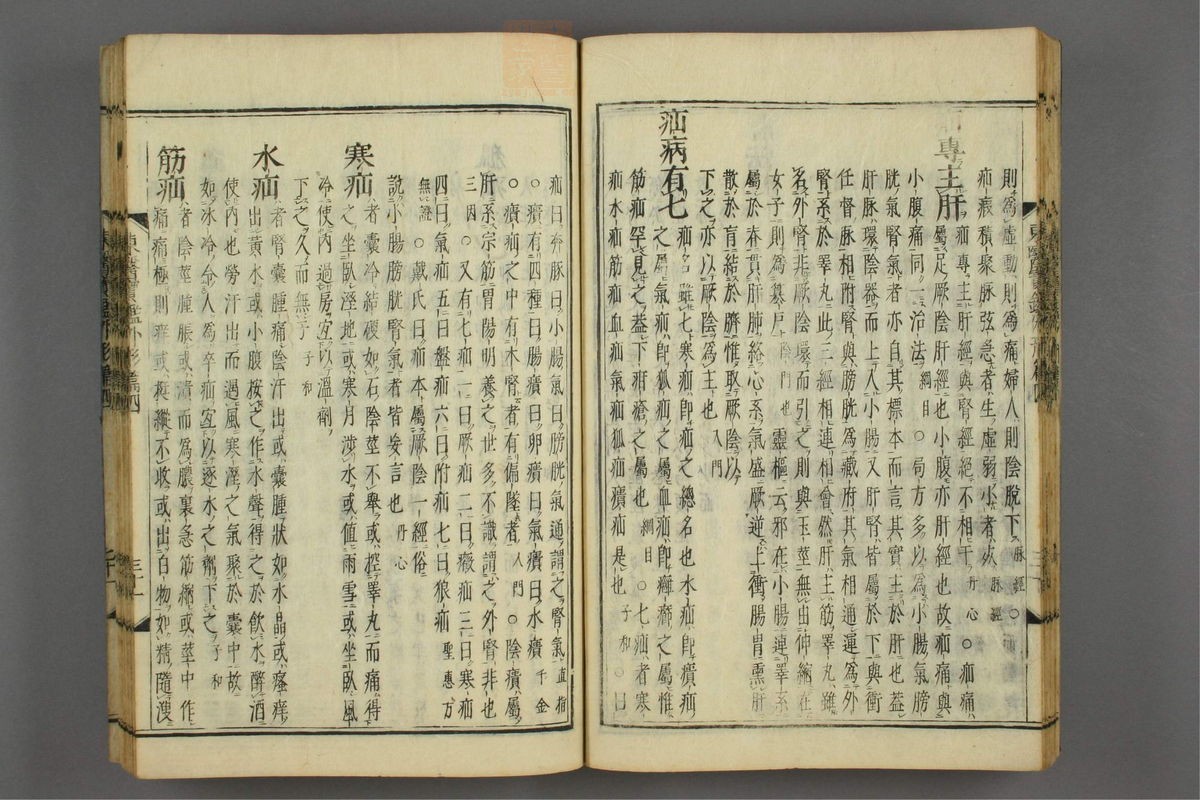 則爲虛動則爲痛婦人則陰脫下脉經○
疝瘕積聚脉弦急者生虛弱小者死脉經
專主肝
疝專主肝經與腎經絕不相干丹心○疝痛
屬足厥陰肝經也小腹亦肝經也故疝痛與
小腹痛同一治法綱目○局方多以爲小腸氣膀
胱氣腎氣者亦自其標本而言其實主於肝也盖
肝脉環陰器而上入小腸又肝腎皆屬於下與衝
任督脉相附腎與膀胱爲藏府其氣相通運爲外
腎系於睪丸此三經相連相會然肝主筋睪丸雖
名外腎非厥陰環而引之則與玉莖無由伸縮在
女子則爲纂戶陰門也靈樞云邪在小腸連睪系
屬於脊貫肝肺絡心系氣盛厥逆上衝腸胃熏肝
散於肓結於臍惟取厥陰以
下之亦以厥陰爲主也入門
疝病有七
疝名雖七寒疝卽疝之總名也水疝卽㿗疝
之屬氣疝卽狐引之屬血疝卽癉癤之屬惟
筋疝罕見之盖下疳瘡之屬也綱目○七疝者寒
疝水疝筋疝血疝氣疝狐疝㿗疝是也子和○曰
疝曰奔豚曰小腸氣曰膀胱氣通謂之腎氣直指
○㿗有四種曰腸㿗曰卵㿗曰氣㿗曰水㿗千金
○㿗疝之中有木腎者有偏墜者入門○陰㿗屬
肝系宗筋胃陽明養之世多不識謂之外腎非也
三因○又有七疝一曰厥疝二曰癥疝三曰寒疝
四曰氣疝五曰盤疝六曰附疝七曰狼疝聖惠方
無證○戴氏曰疝本屬厥陰一經俗
說小腸膀胱腎氣者皆妄言也丹心
寒疝
者囊冷結硬如石陰莖不擧或控睪丸而痛得
之坐臥溼地或寒月涉水或値雨雪或坐臥風
冷使內過房宜以溫劑
下之久而無子子和
水疝
者腎囊腫痛陰汗出或囊腫狀如水晶或瘙痒
出黃水或小腹按之作水聲得之於飮水醉酒
使內也勞汗出而遇風寒溼之氣聚於囊中故
如冰冷令人爲卒疝宜以逐水之劑下之子和
筋疝
者陰莖腫脹或潰而爲膿裏急筋縮或莖中作
痛痛極則痒或挺縱不收或出白物如精隨溲